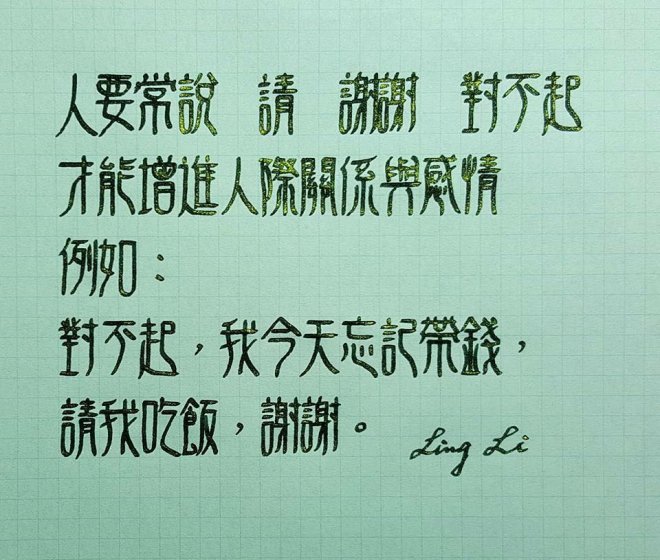 人要常說　請　謝謝　對不起
才能增進人際關係與感情
例如：
對不起，我今天忘記帶錢，
請我吃飯，謝謝。
Ling Li